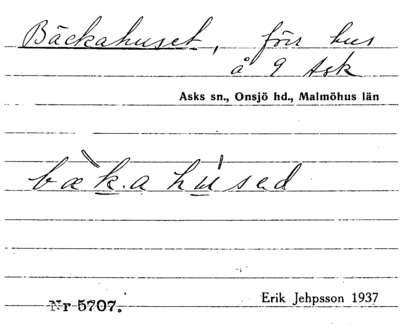 Bäckahuset, förr hus
å 9 Ask
Asks sn., Onsjö hd., Malmöhus län
bæ̀k.a húsed
Nr 5707.
Erik Jehpsson 1937